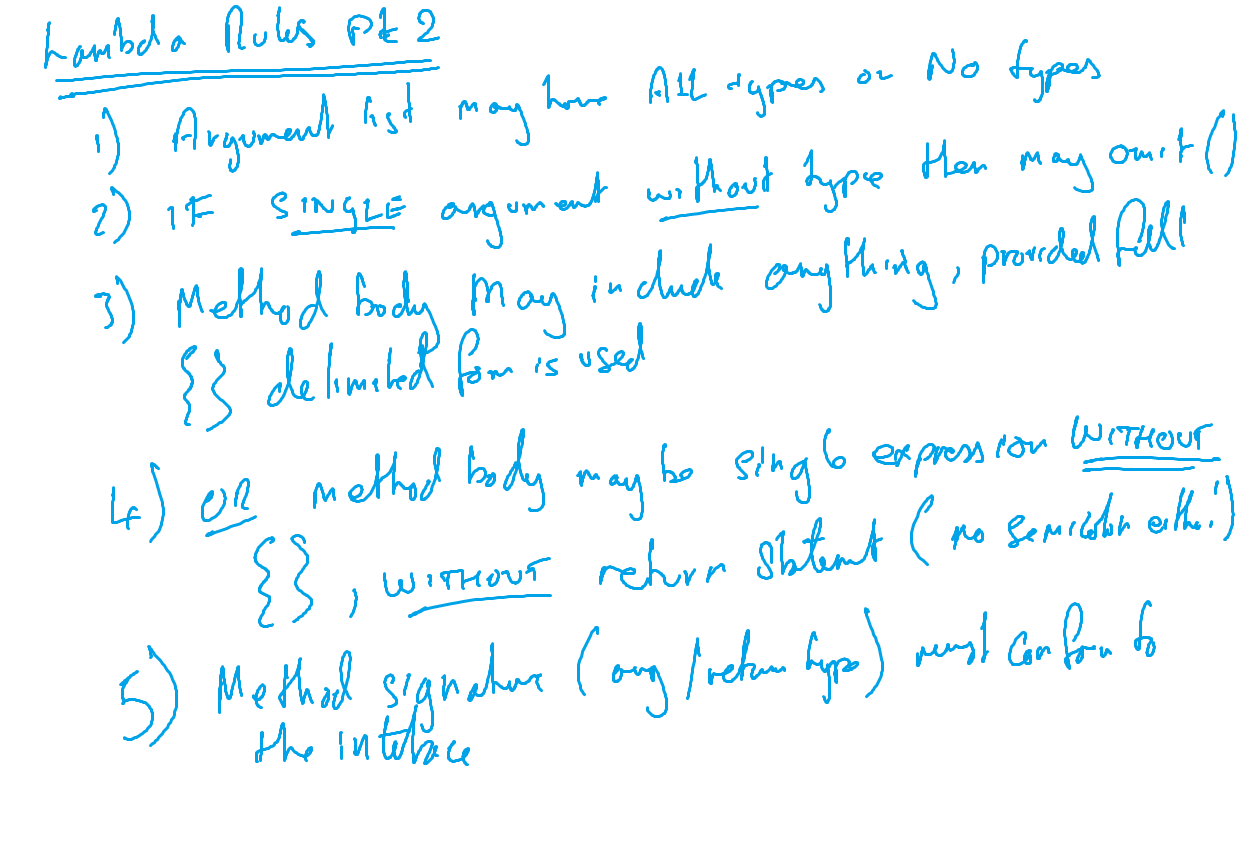 Lambda Rules Pt 2
1) Argument list may have All types or No types
2) IF SINGLE argument without type then may omit ()
3) Method body may include anything, provided full
{} delimited form is used
4) OR method body may be single expression WITHOUT
{}, WITHOUT return statement (no semicolon either!)
5) Method signature (arg/return type) must conform to
the interface